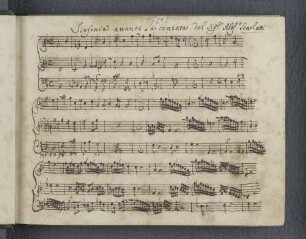 Sinfonia avanti la serenata del Sigr Aless Scarlatti